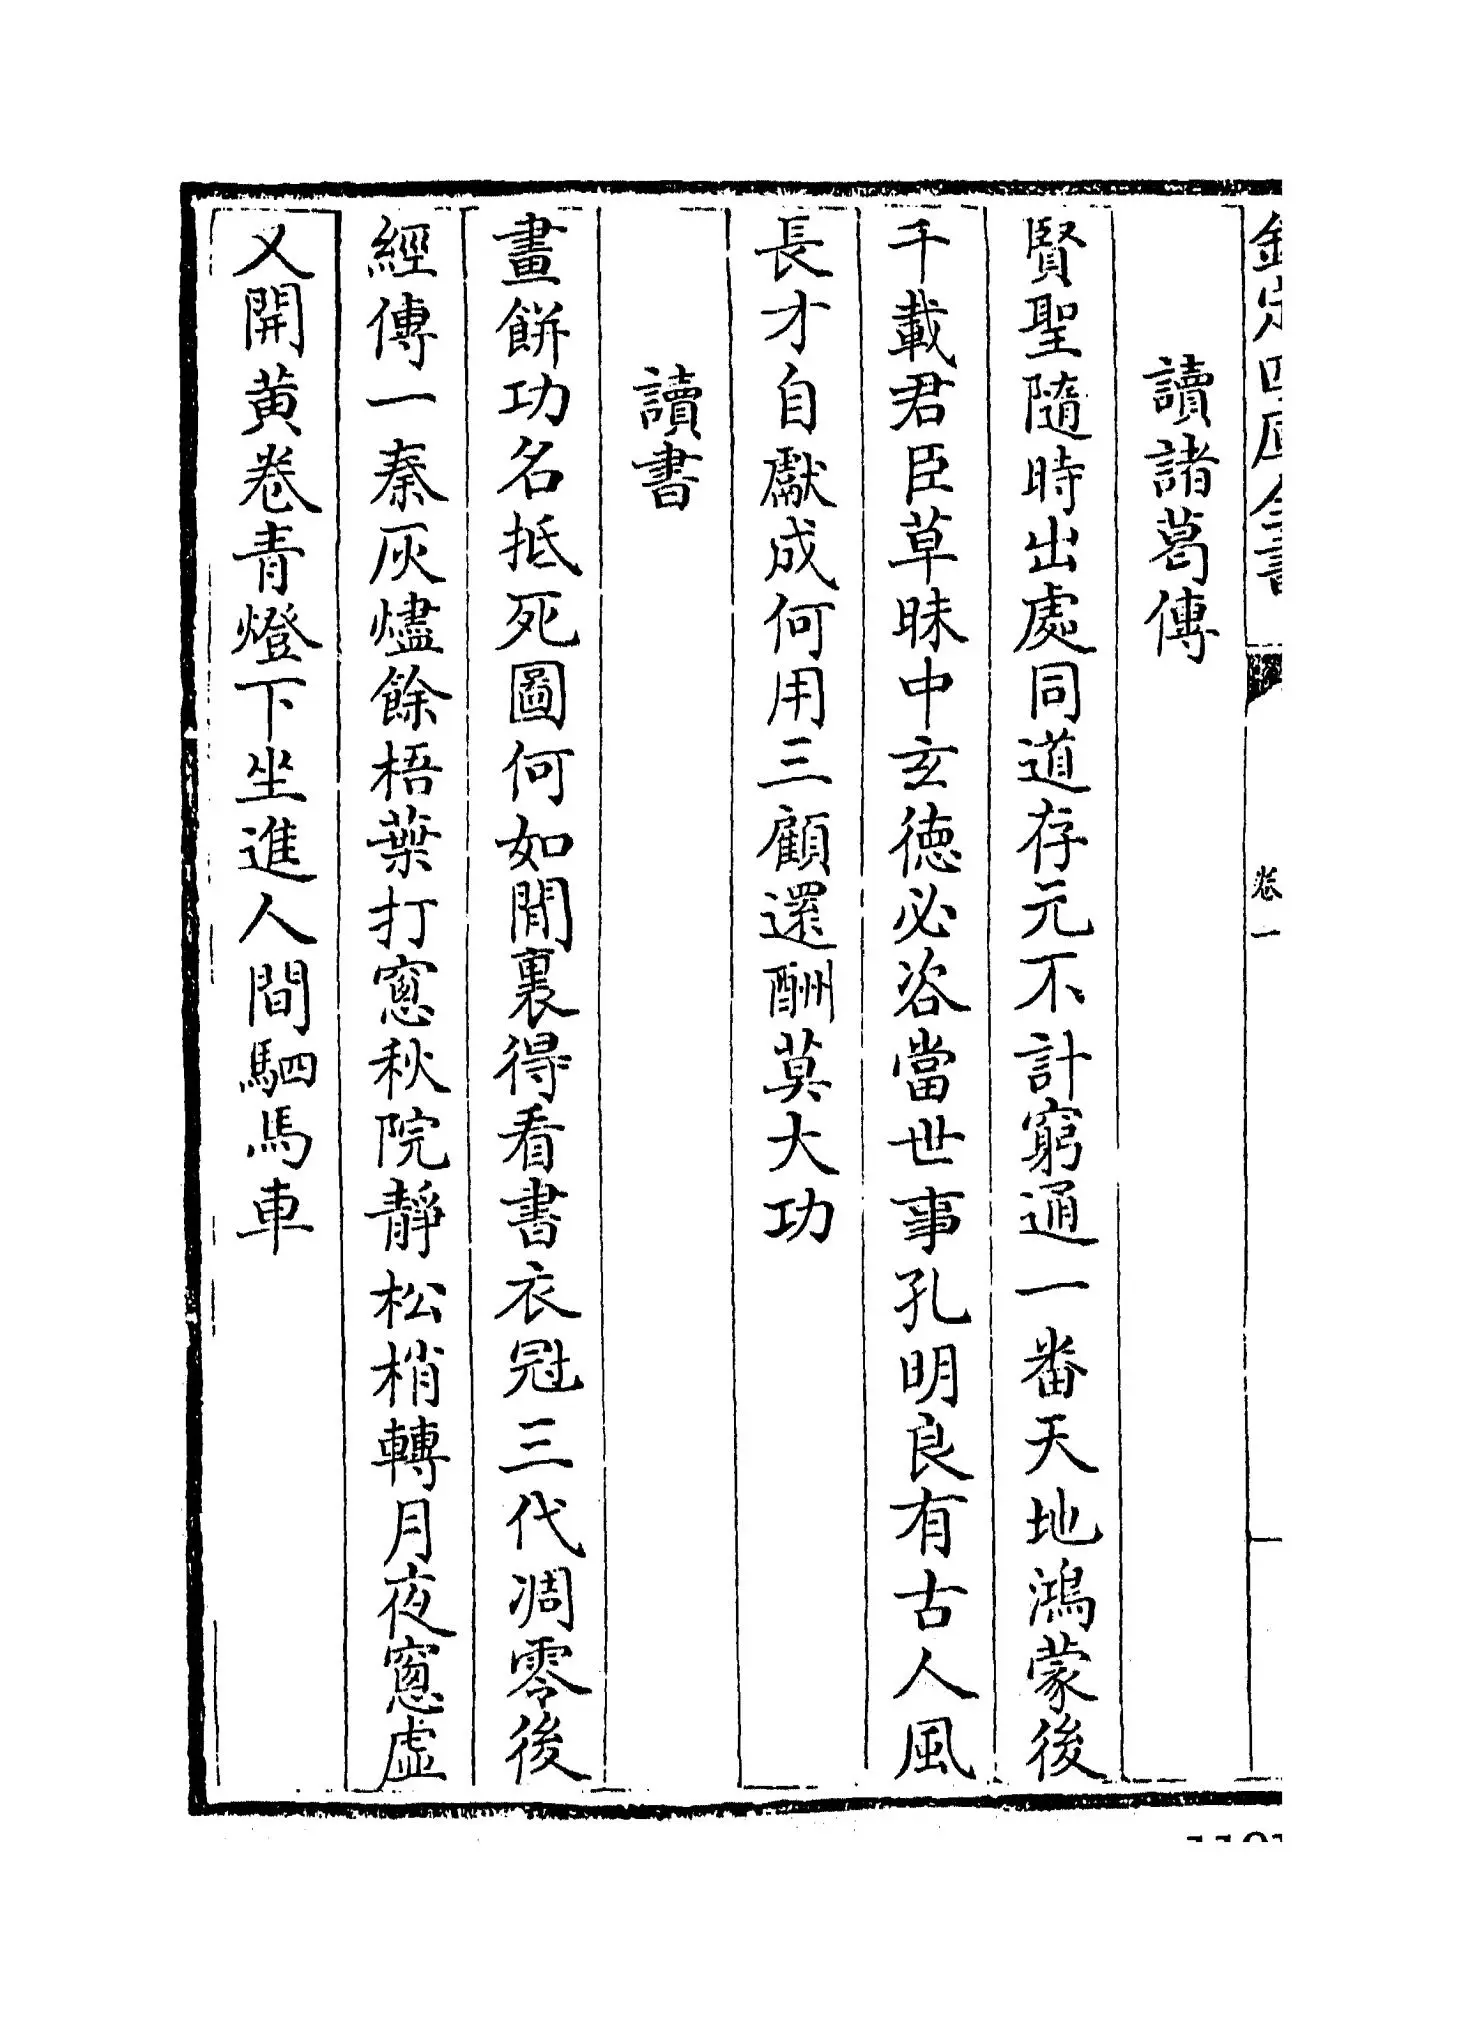 欽定四庫全書 卷一
讀諸葛傳
賢聖隨時出處同道存元不計窮通一番天地鴻蒙後
千載君臣草昧中玄徳必咨當世事孔明良有古人風
長才自獻成何用三顧還酬莫大功
讀書
畫餅功名抵死圖何如閒裏得看書衣冠三代凋零後
經傳一秦灰燼餘梧葉打窻秋院靜松梢轉月夜窻虛
又開黄卷青燈下坐進人間駟馬車